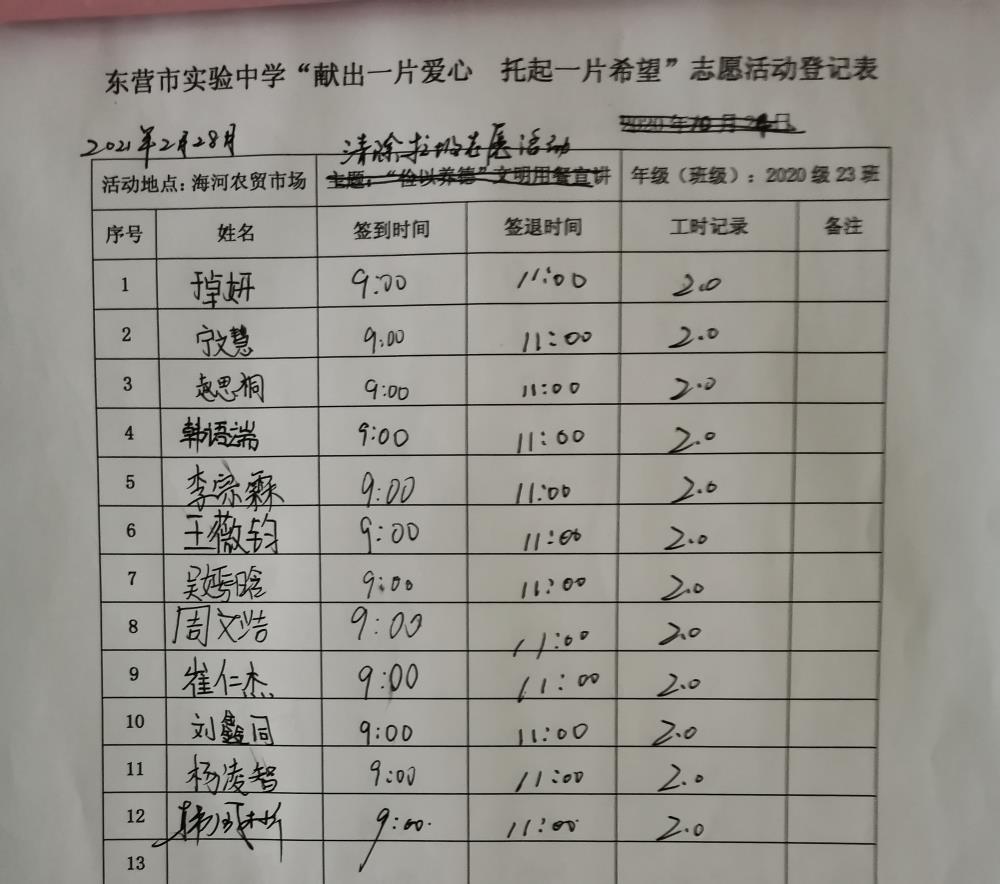 东营市实验中学“献出一片爱心 托起一片希望”志愿活动登记表
2021年2月28月 清除垃圾志愿活动 2020年10月24日
活动地点：海河农贸市场 主题：“俭以养德”文明用餐宣讲 年级（班级）：2020级23班
序号 姓名 签到时间 签退时间 工时记录 备注
1 卓妍 9:00 11:00 2.0
2 宁文慧 9:00 11:00 2.0
3 赵思桐 9:00 11:00 2.0
4 韩语端 9:00 11:00 2.0
5 李宗霖 9:00 11:00 2.0
6 王薇钧 9:00 11:00 2.0
7 吴嫣晗 9:00 11:00 2.0
8 周文浩 9:00 11:00 2.0
9 崔仁杰 9:00 11:00 2.0
10 刘鑫同 9:00 11:00 2.0
11 杨凌智 9:00 11:00 2.0
12 9:00 11:00 2.0
13